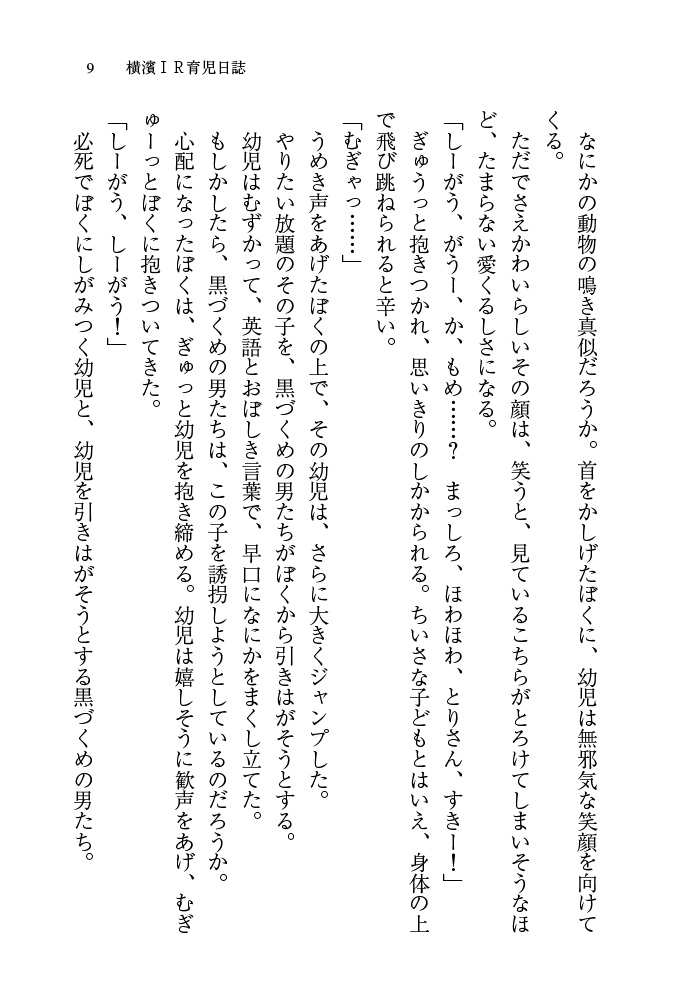 9 横濱ＩＲ育児日誌
　なにかの動物の鳴き真似だろうか。首をかしげたぼくに、幼児は無邪気な笑顔を向けて
くる。
　ただでさえかわいらしいその顔は、笑うと、見ているこちらがとろけてしまいそうなほ
ど、たまらない愛くるしさになる。
「しーがう、がうー、か、もめ……？　まっしろ、ほわほわ、とりさん、すきー！」
　ぎゅうっと抱きつかれ、思いきりのしかかられる。ちいさな子どもとはいえ、身体の上
で飛び跳ねられると辛い。
「むぎゃっ……」
　うめき声をあげたぼくの上で、その幼児は、さらに大きくジャンプした。
　やりたい放題のその子を、黒づくめの男たちがぼくから引きはがそうとする。
　幼児はむずかって、英語とおぼしき言葉で、早口になにかをまくし立てた。
　もしかしたら、黒づくめの男たちは、この子を誘拐しようとしているのだろうか。
　心配になったぼくは、ぎゅっと幼児を抱き締める。幼児は嬉しそうに歓声をあげ、むぎ
ゅーっとぼくに抱きついてきた。
「しーがう、しーがう！」
　必死でぼくにしがみつく幼児と、幼児を引きはがそうとする黒づくめの男たち。